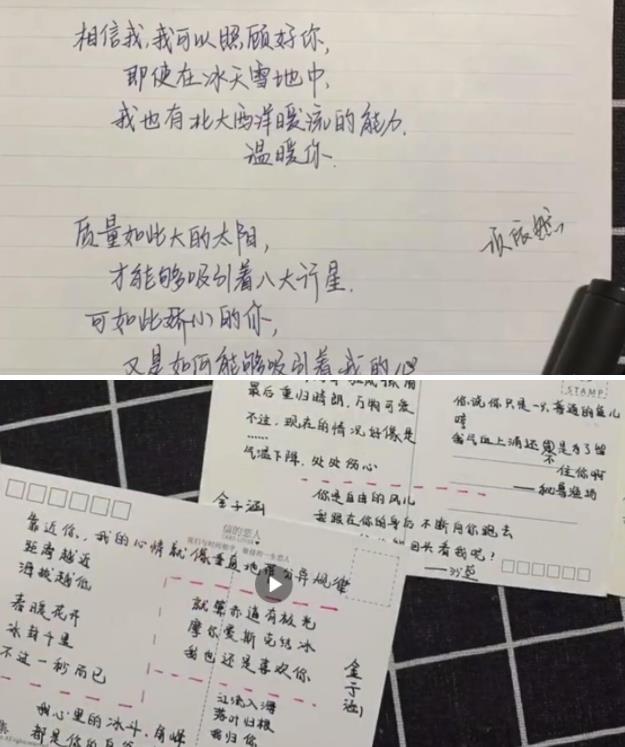 相信我,我可以照顾好你,
即使在冰天雪地中,
我也有北大西洋暖流的能力,
温暖你.
质量如此大的太阳,
才能够吸引着八大行星.
可如此娇小的你,
又是如何能够吸引着我的心
STAMP
最后重归晴朗,万物可爱
不过,现在的情况好像是
……
气温下降,处处伤心
金子涵
你说你只是一只普通的鱼儿
唔
我气血上涌还不是为了留
住你啊
——秘鲁渔场
你是自由的风儿
我跟在你的身后不断向你跑去
回头看我呢?
——沙草
信的恋人
靠近你,我的心情就像垂直地带分异规律
距离越近
海拔越低
春暖花开
冰封千里
不过一秒而已
就算赤道有极光
摩尔曼斯克结冰
我也还是喜欢你
金子涵
江流入海
落叶归根
我归你
我心里的冰斗、角峰
都是你的